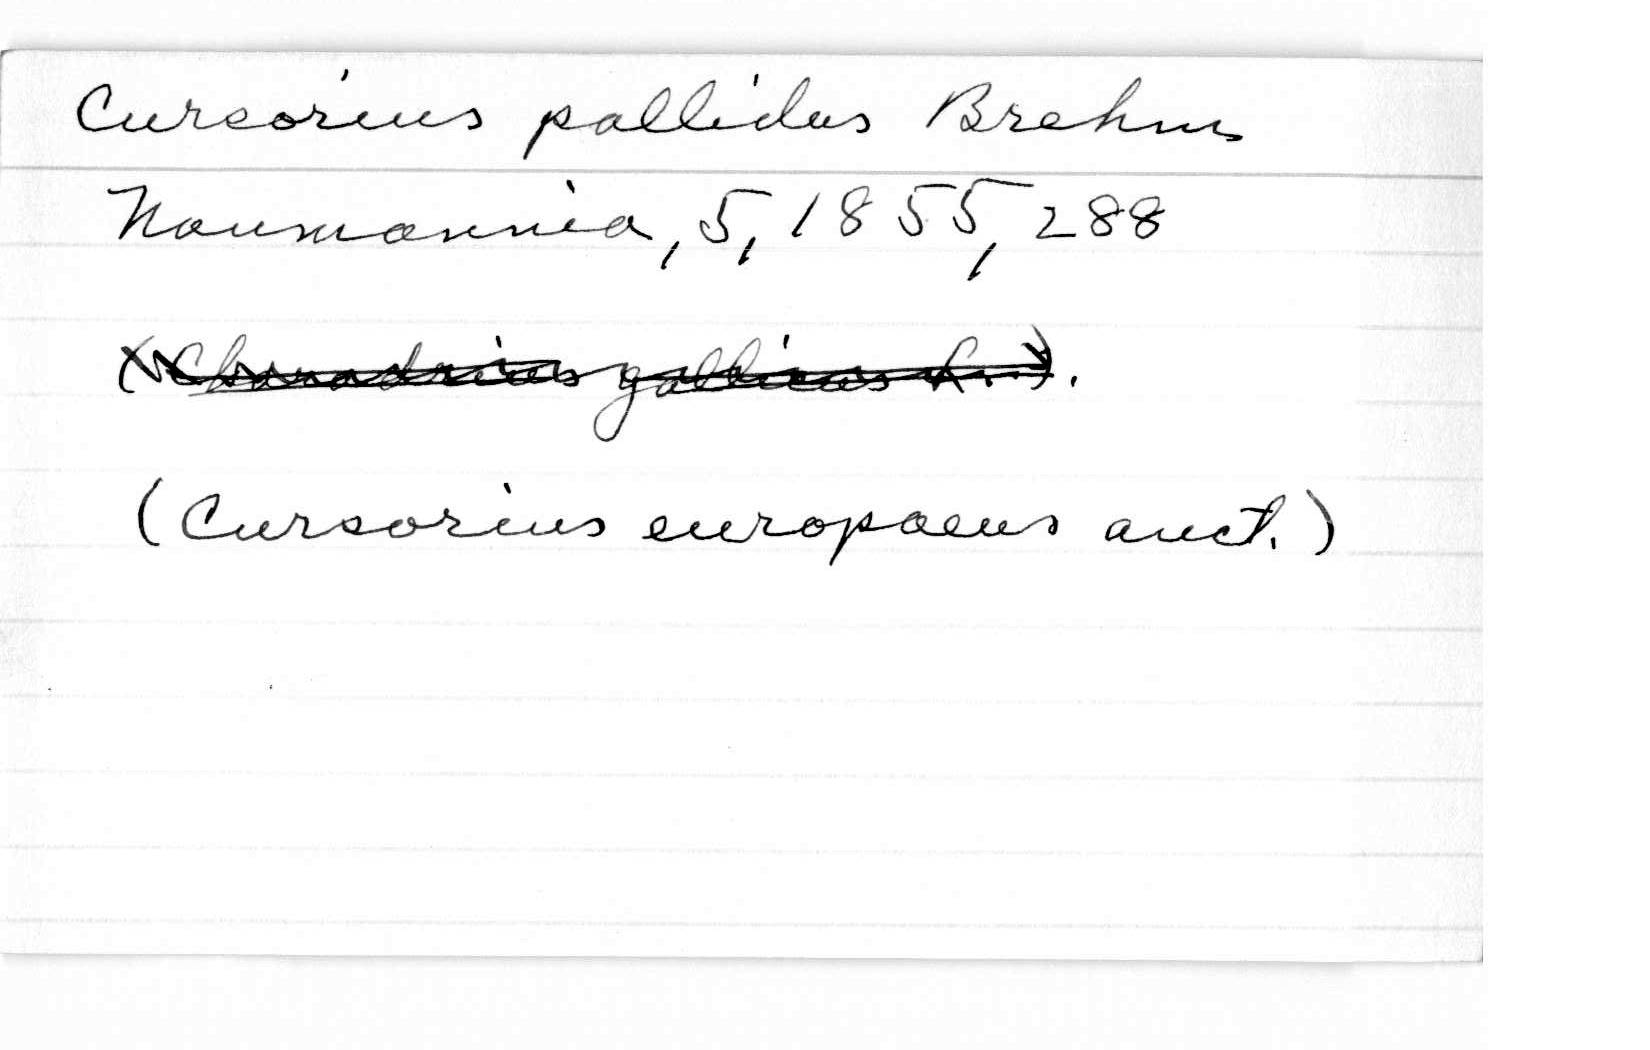 Cursorius pallidus Brehm
Naumannia, 5, 1855, 288
(Charadrius gallicus L.).
(Cursorius europaeus auct.)